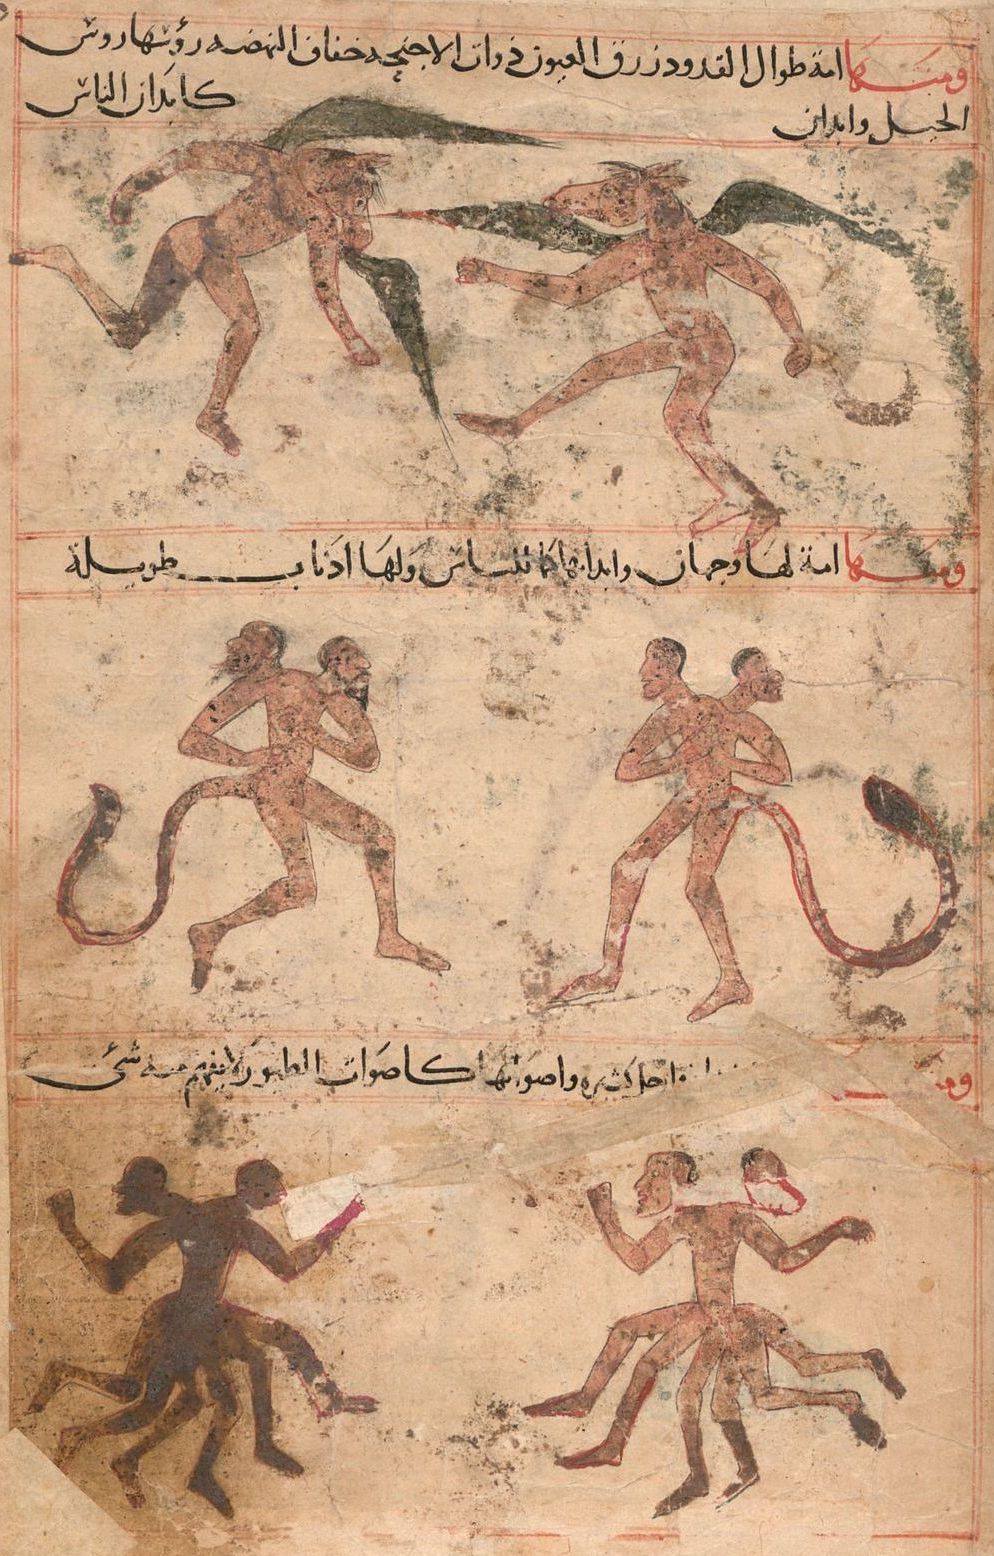 ومنها امة طوال القدود زرق العيون ذوات الاجنحه خفاف النهضه رؤسها روس
الخيل وابدان كابدان الناس
ومنها امة لها وجهان وابدانها كالناس ولها اذناب طويلة
ارجل كثيره واصواتها كاصوات الطيور لا يفهم منه شئ